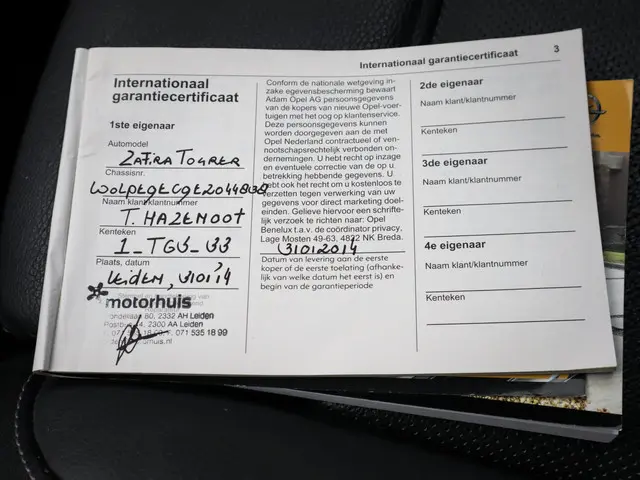 Internationaal garantiecertificaat 3
Internationaal
garantiecertificaat
1ste eigenaar
Automodel
ZAFIRA TOURER
Chassisnr.
Naam klant/klantnummer
T. HAZENOOT
Kenteken
1-TGS-33
Plaats, datum
LEIDEN, 310114
motorhuis
80, 2332 AH Leiden
4, 2300 AA Leiden
F. 071 535 18 99
Conform de nationale wetgeving in-
zake egevensbescherming bewaart
Adam Opel AG persoonsgegevens
van de kopers van nieuwe Opel-voer-
tuigen met het oog op klantenservice.
Deze persoonsgegevens kunnen
worden doorgegeven aan de met
Opel Nederland contractueel of ven-
nootschapsrechtelijk verbonden on-
dernemingen. U hebt recht op inzage
en eventuele correctie van de op u
betrekking hebbende gegevens. U
hebt ook het recht om u kosteloos te
verzetten tegen verwerking van uw
gegevens voor direct marketing doel-
einden. Gelieve hiervoor een schrifte-
lijk verzoek te richten naar: Opel
Benelux t.a.v. de coördinator privacy,
Lage Mosten 49-63, 4822 NK Breda.
31012014
Datum van levering aan de eerste
koper of de eerste toelating (afhanke-
lijk van welke datum het eerst is) en
begin van de garantieperiode
2de eigenaar
Naam klant/klantnummer
Kenteken
3de eigenaar
Naam klant/klantnummer
Kenteken
4e eigenaar
Naam klant/klantnummer
Kenteken